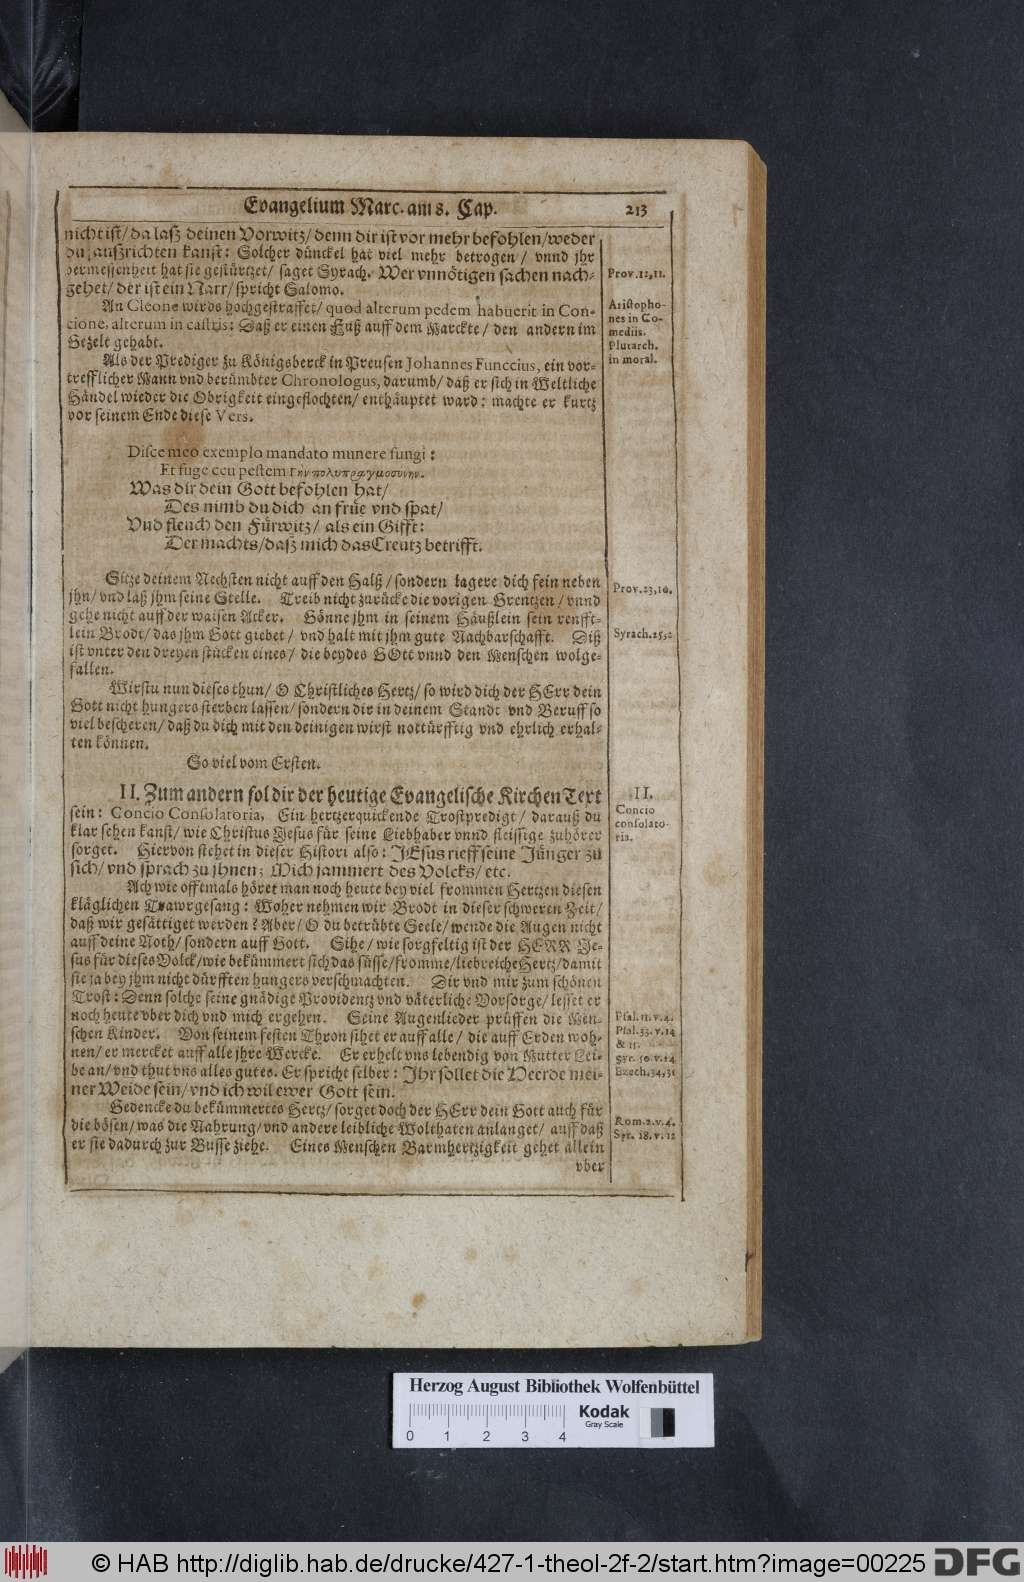 Evangelium Marc. am 8. Cap. 213
nicht ist/ da laß deinen Vorwitz/ denn dir ist vor mehr befohlen/ weder
du außrichten kanst: Solcher dünckel hat viel mehr betrogen/ vnnd jhr
vermessenheit hat sie gestürtzet/ saget Syrach. Wer vnnötigen sachen nach-
gehet/ der ist ein Narr/ spricht Salomo.
Prov. 12, 11.
An Cleone wirds hochgestraffet/ quod alterum pedem habuerit in Con-
cione, alterum in castris: Daß er einen Fuß auff dem Marckte/ den andern im
Gezelt gehabt.
Aristopho-
nes in Co-
mediis.
Plutarch.
in moral.
Als der Prediger zu Königsberck in Preusen Johannes Funccius, ein vor-
trefflicher Mann vnd berümbter Chronologus, darumb/ daß er sich in Weltliche
Händel wieder die Obrigkeit eingeflochten/ enthäuptet ward: machte er kurtz
vor seinem Ende diese Vers.
Disce meo exemplo mandato munere fungi:
Et fuge ceu pestem την πολυπραγμοσυνην.
Was dir dein Gott befohlen hat/
Des nimb du dich an früe vnd spat/
Vnd fleuch den Fürwitz/ als ein Gifft:
Der machts/ daß mich das Creutz betrifft.
Sitze deinem Nechsten nicht auff den Halß/ sondern lagere dich fein neben
jhn/ vnd laß jhm seine Stelle. Treib nicht zurücke die vorigen Grentzen/ vnnd
gehe nicht auff der waisen Acker. Gönne jhm in seinem Häußlein sein renfft-
lein Brodt/ das jhm Gott giebet/ vnd halt mit jhm gute Nachbarschafft. Diß
ist vnter den dreyen stücken eines/ die beydes GOtt vnnd den Menschen wolge-
fallen.
Prov. 23, 10.
Syrach. 25, 2
Wirstu nun dieses thun/ O Christliches Hertz/ so wird dich der HErr dein
Gott nicht hungers sterben lassen/ sondern dir in deinem Standt vnd Beruff so
viel bescheren/ daß du dich mit den deinigen wirst nottürfftig vnd ehrlich erhal-
ten können.
So viel vom Ersten.
II. Zum andern sol dir der heutige Evangelische Kirchen Text
sein: Concio Consolatoria, Ein hertzerquickende Trostpredigt/ darauß du
klar sehen kanst/ wie Christus Jesus für seine Liebhaber vnnd fleissige zuhörer
sorget. Hiervon stehet in dieser Histori also: JEsus rieff seine Jünger zu
sich/ vnd sprach zu jhnen; Mich jammert des Volcks/ etc.
II.
Concio
consolato-
ria.
Ach wie offtmals höret man noch heute bey viel frommen Hertzen diesen
kläglichen Trawrgesang: Woher nehmen wir Brodt in dieser schweren Zeit/
daß wir gesättiget werden? Aber/ O du betrübte Seele/ wende die Augen nicht
auff deine Noth/ sondern auff Gott. Sihe/ wie sorgfeltig ist der HERR Je-
sus für dieses Volck/ wie bekümmert sich das süsse/ fromme/ liebreiche Hertz/ damit
sie ja bey jhm nicht dürfften hungers verschmachten. Dir vnd mir zum schönen
Trost: Denn solche seine gnädige Providentz vnd väterliche Vorsorge/ lesset er
noch heute vber dich vnd mich ergehen. Seine Augenlieder prüffen die Men-
schen Kinder. Von seinem festen Thron sihet er auff alle/ die auff Erden woh-
nen/ er mercket auff alle jhre Wercke. Er erhelt vns lebendig von Mutter Lei-
be an/ vnd thut vns alles gutes. Er spricht selber: Jhr sollet die Heerde mei-
ner Weide sein/ vnd ich wil ewer Gott sein.
Psal. 11. v. 4.
Psal. 33. v. 14
& 15.
Syr. 50. v. 24
Ezech. 34, 31
Gedencke du bekümmertes Hertz/ sorget doch der HErr dein Gott auch für
die bösen/ was die Nahrung/ vnd andere leibliche Wolthaten anlanget/ auff daß
er sie dadurch zur Busse ziehe. Eines Menschen Barmhertzigkeit gehet allein
vber
Rom. 2. v. 4.
Syr. 18. v. 12
Herzog August Bibliothek Wolfenbüttel
0 1 2 3 4
Kodak
Gray Scale
© HAB http://diglib.hab.de/drucke/427-1-theol-2f-2/start.htm?image=00225
DFG